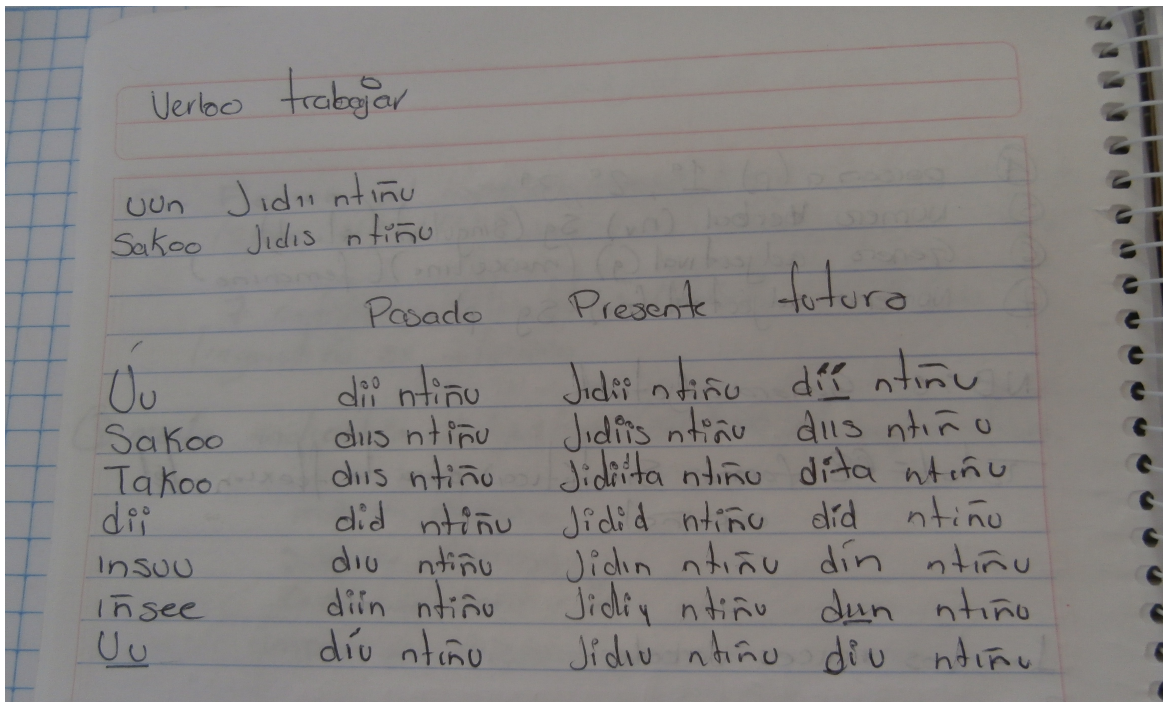 Verbo trabajar
uun Jidii ntiñu
Sakoo Jidis ntiñu
Pasado Presente futuro
Úu dii ntiñu Jidii ntiñu díí ntiñu
Sakoo diis ntiñu Jidiis ntiñu diis ntiñu
Takoo diis ntiñu Jidiita ntiñu díta ntiñu
dii did ntiñu Jidid ntiñu did ntiñu
insuu diu ntiñu Jidin ntiñu dín ntiñu
iñsee diin ntiñu Jidiy ntiñu ntiñu
Uu díu ntiñu Jidiu ntiñu diu ntiñu